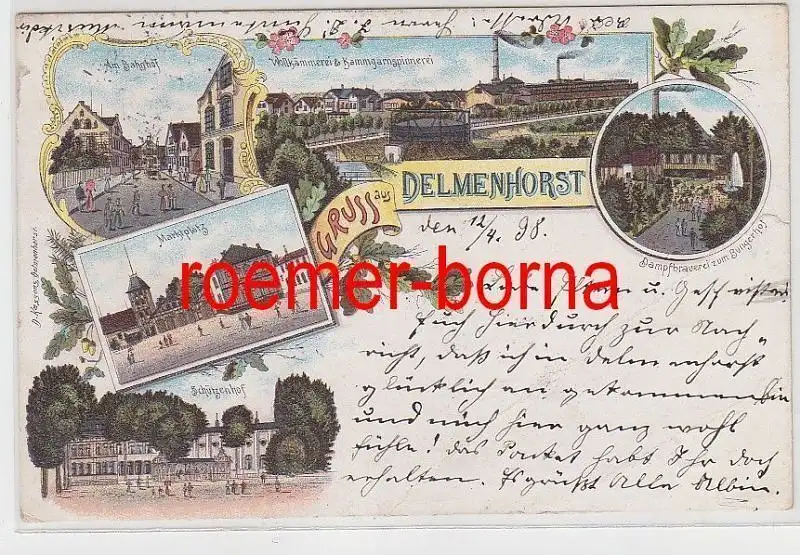 Am Bahnhof
Wollkämmerei & Kammgarnspinnerei
GRUSS aus
DELMENHORST
Marktplatz
Dampfbrauerei zum Bungerhof
Schützenhof
roemer-borna
den 12/4. 98.
Liebe Eltern u. Geschwister
Euch hierdurch zur Nach
richt, daß ich in Delmenhorst
glücklich an gekommen bin
und mich hier ganz wohl
fühle! das Packet habt Ihr doch
erhalten. Es grüßt Alle Albin.